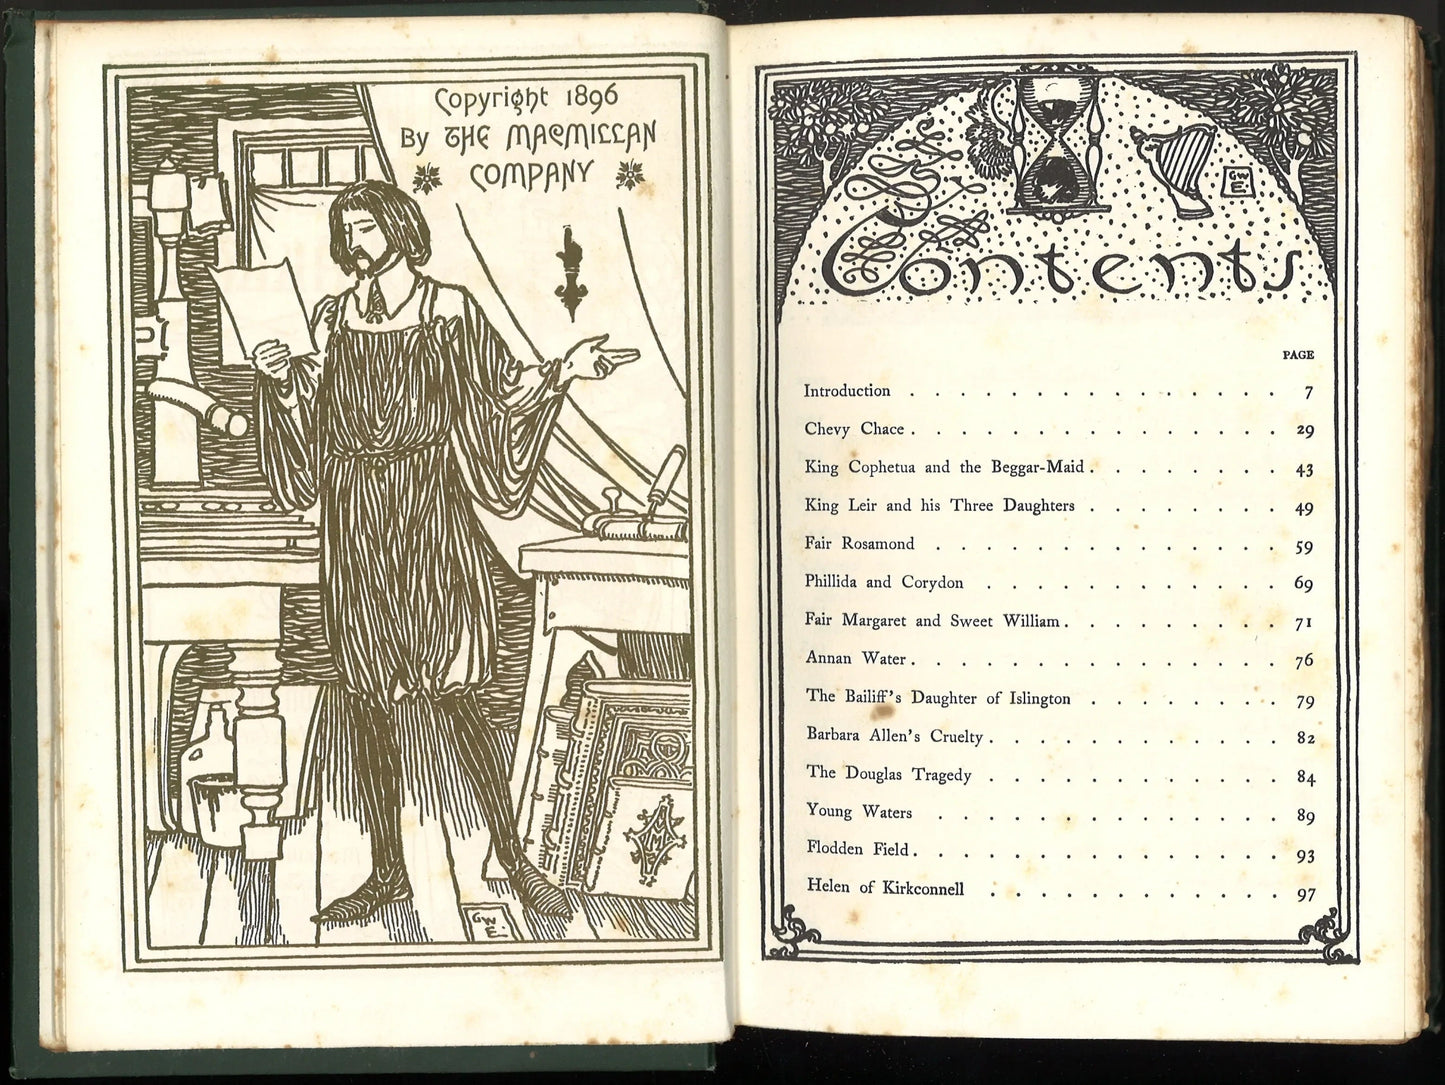 Copyright 1896
By THE MACMILLAN
COMPANY
M
GW
E.
GW
E.
Contents
PAGE
Introduction . . . . . . . . . . . . . . . 7
Chevy Chace . . . . . . . . . . . . . . . 29
King Cophetua and the Beggar-Maid . . . . . . . . 43
King Leir and his Three Daughters . . . . . . . . 49
Fair Rosamond . . . . . . . . . . . . . . 59
Phillida and Corydon . . . . . . . . . . . . 69
Fair Margaret and Sweet William . . . . . . . . . 71
Annan Water . . . . . . . . . . . . . . . 76
The Bailiff's Daughter of Islington . . . . . . . . 79
Barbara Allen's Cruelty . . . . . . . . . . . . 82
The Douglas Tragedy . . . . . . . . . . . . 84
Young Waters . . . . . . . . . . . . . . 89
Flodden Field . . . . . . . . . . . . . . . 93
Helen of Kirkconnell . . . . . . . . . . . . 97